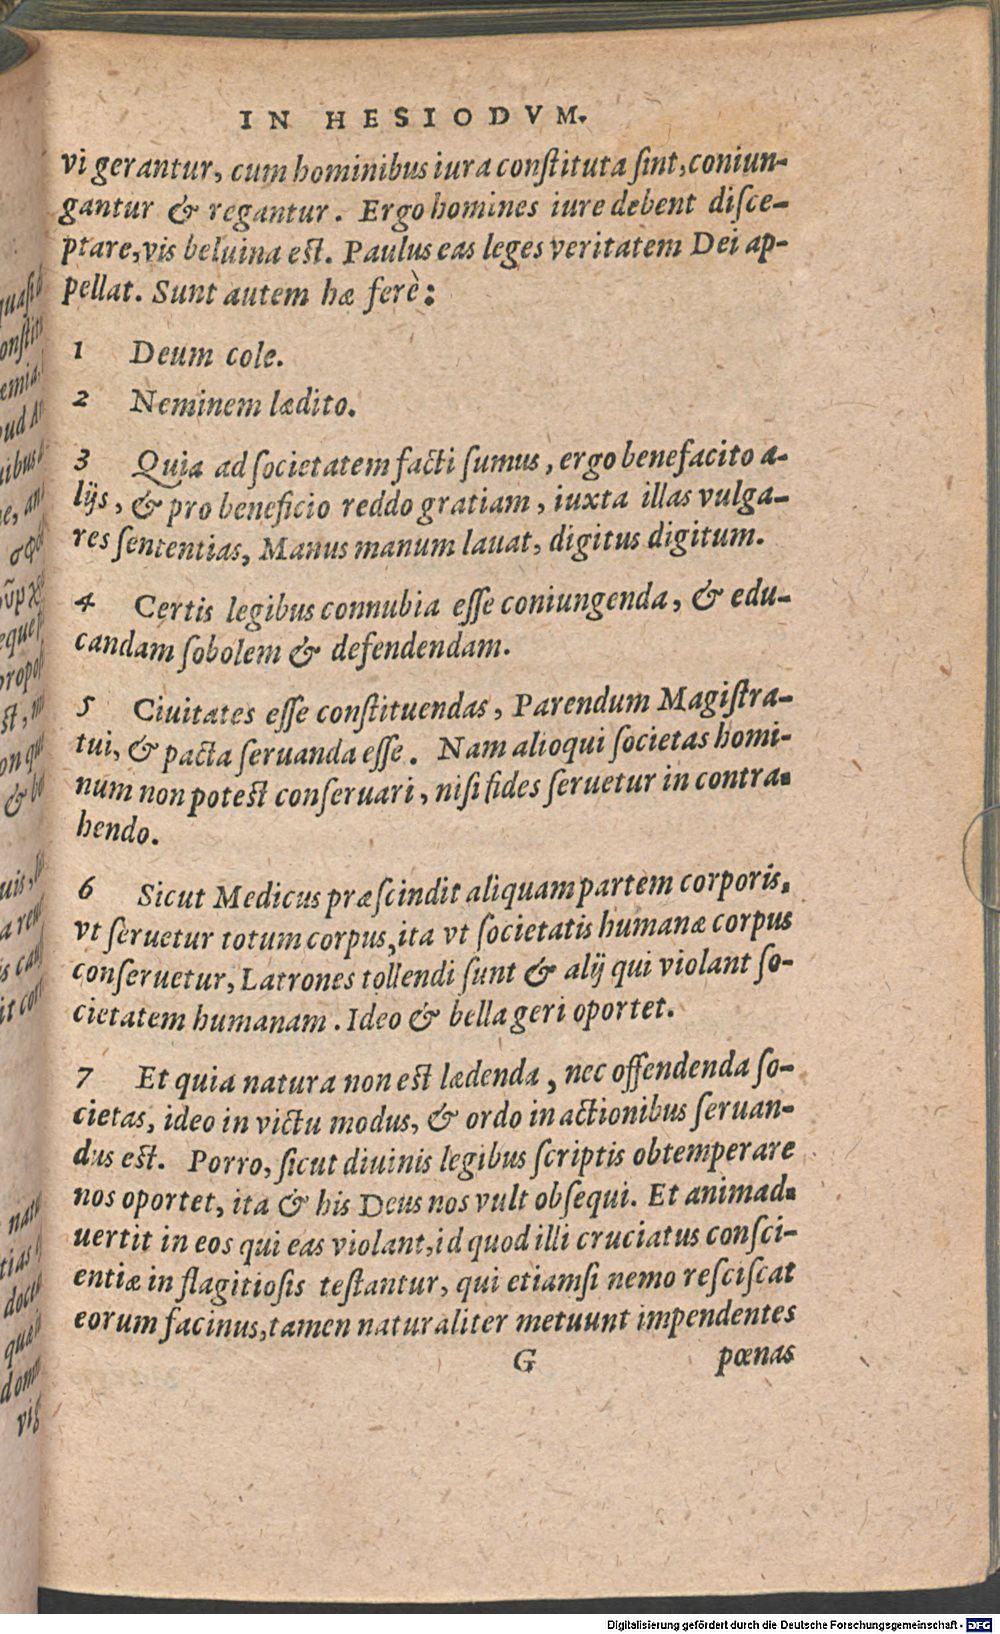 IN HESIODVM.
vi gerantur, cum hominibus iura conſtituta ſint, coniun-
gantur & regantur. Ergo homines iure debent diſce-
ptare, vis beluina eſt. Paulus eas leges veritatem Dei ap-
pellat. Sunt autem hæ ferè:
1 Deum cole.
2 Neminem lædito.
3 Quia ad ſocietatem facti ſumus, ergo benefacito a-
lijs, & pro beneficio reddo gratiam, iuxta illas vulga-
res ſententias, Manus manum lauat, digitus digitum.
4 Certis legibus connubia eſſe coniungenda, & edu-
candam ſobolem & defendendam.
5 Ciuitates eſſe conſtituendas, Parendum Magiſtra-
tui, & pacta ſeruanda eſſe. Nam alioqui ſocietas homi-
num non poteſt conſeruari, niſi fides ſeruetur in contra-
hendo.
6 Sicut Medicus præſcindit aliquam partem corporis,
vt ſeruetur totum corpus, ita vt ſocietatis humanæ corpus
conſeruetur, Latrones tollendi ſunt & alij qui violant ſo-
cietatem humanam. Ideo & bella geri oportet.
7 Et quia natura non eſt lædenda, nec offendenda ſo-
cietas, ideo in victu modus, & ordo in actionibus ſeruan-
dus eſt. Porro, ſicut diuinis legibus ſcriptis obtemperare
nos oportet, ita & his Deus nos vult obſequi. Et animad-
uertit in eos qui eas violant, id quod illi cruciatus conſci-
entiæ in flagitioſis teſtantur, qui etiamſi nemo reſciſcat
eorum facinus, tamen naturaliter metuunt impendentes
G pœnas
Digitalisierung gefördert durch die Deutsche Forschungsgemeinschaft - DFG